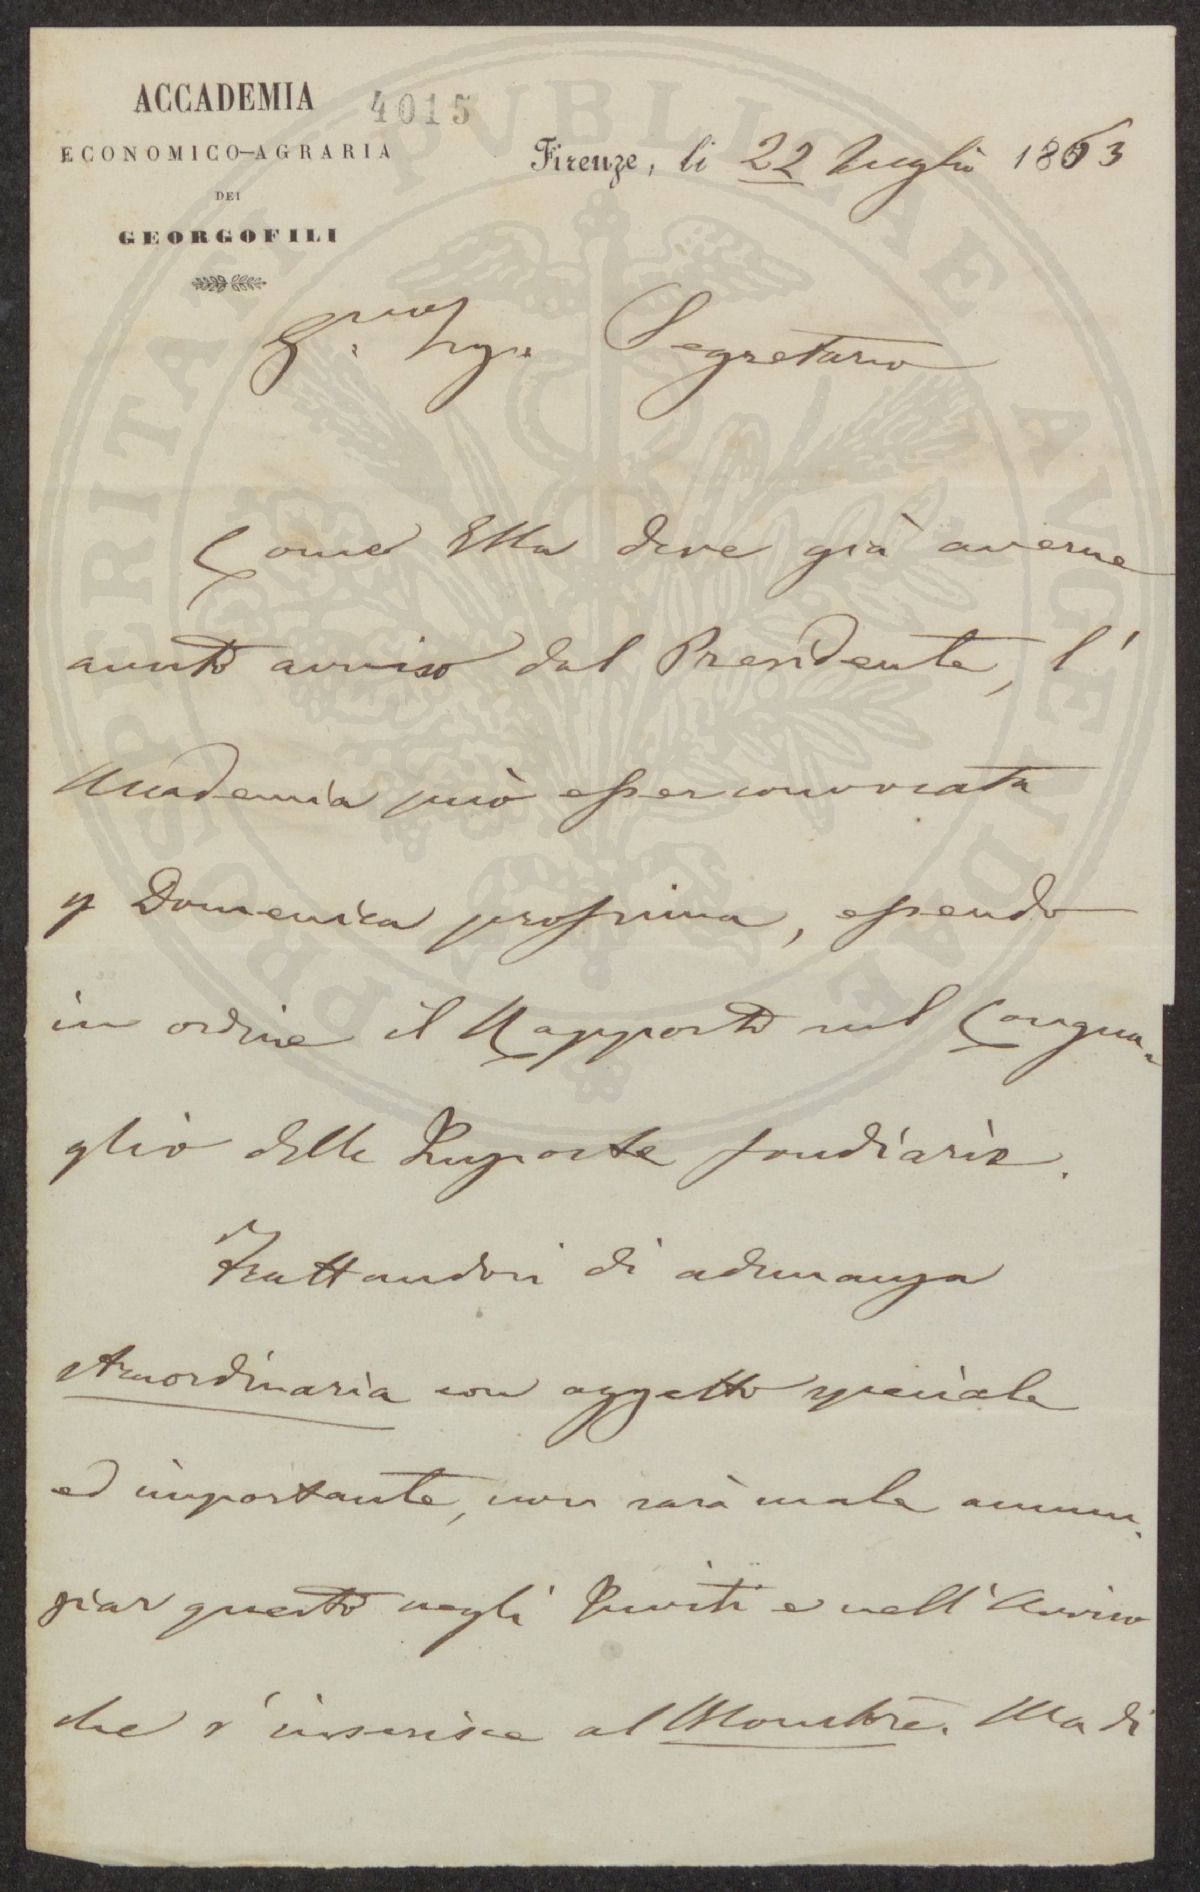 ACCADEMIA
ECONOMICO-AGRARIA
DEI
GEORGOFILI
4015
Firenze, li 22 Luglio 1863
Segretario
Come Ella deve già averne
avuto avviso dal Presidente, l'
Accademia può esser convocata
p Domenica prossima, essendo
in ordine il Rapporto sul Congua-
glio delle Imposte fondiarie.
Trattandosi di adunanza
straordinaria con oggetto speciale
ed importante, non sarà male annun-
ziar questo negli Inviti e nell'Avviso
che s'inserisce al Monitore. Ma di
PROSPERITATI PVBLICAE AVGENDAE